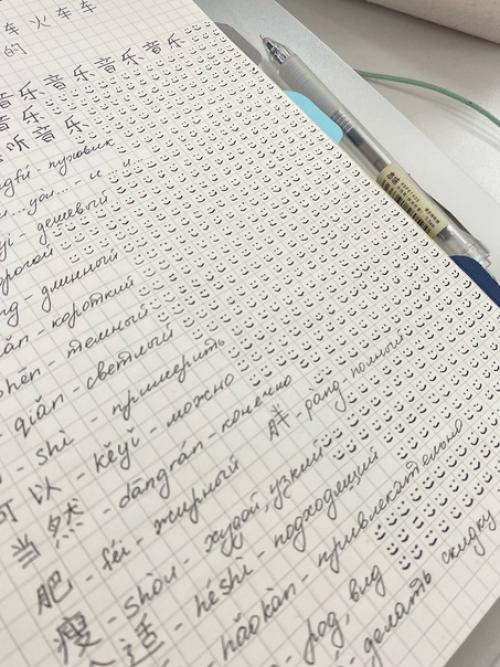 车 火车车
的
音乐音乐音乐音乐
音乐
听音乐
пуховик
...yòu... - и ... и
- дешевый
дорогой
- длинный
- короткий
shēn - темный
qiǎn - светлый
shì - примерить
可以 - kěyǐ - можно
当然 - dāngrán - конечно
胖 - pàng - полный
肥 - féi - жирный
瘦 - shòu - худой, узкий
适 - héshì - подходящий
hǎokàn - привлекательно
- род, вид
- делать скидку